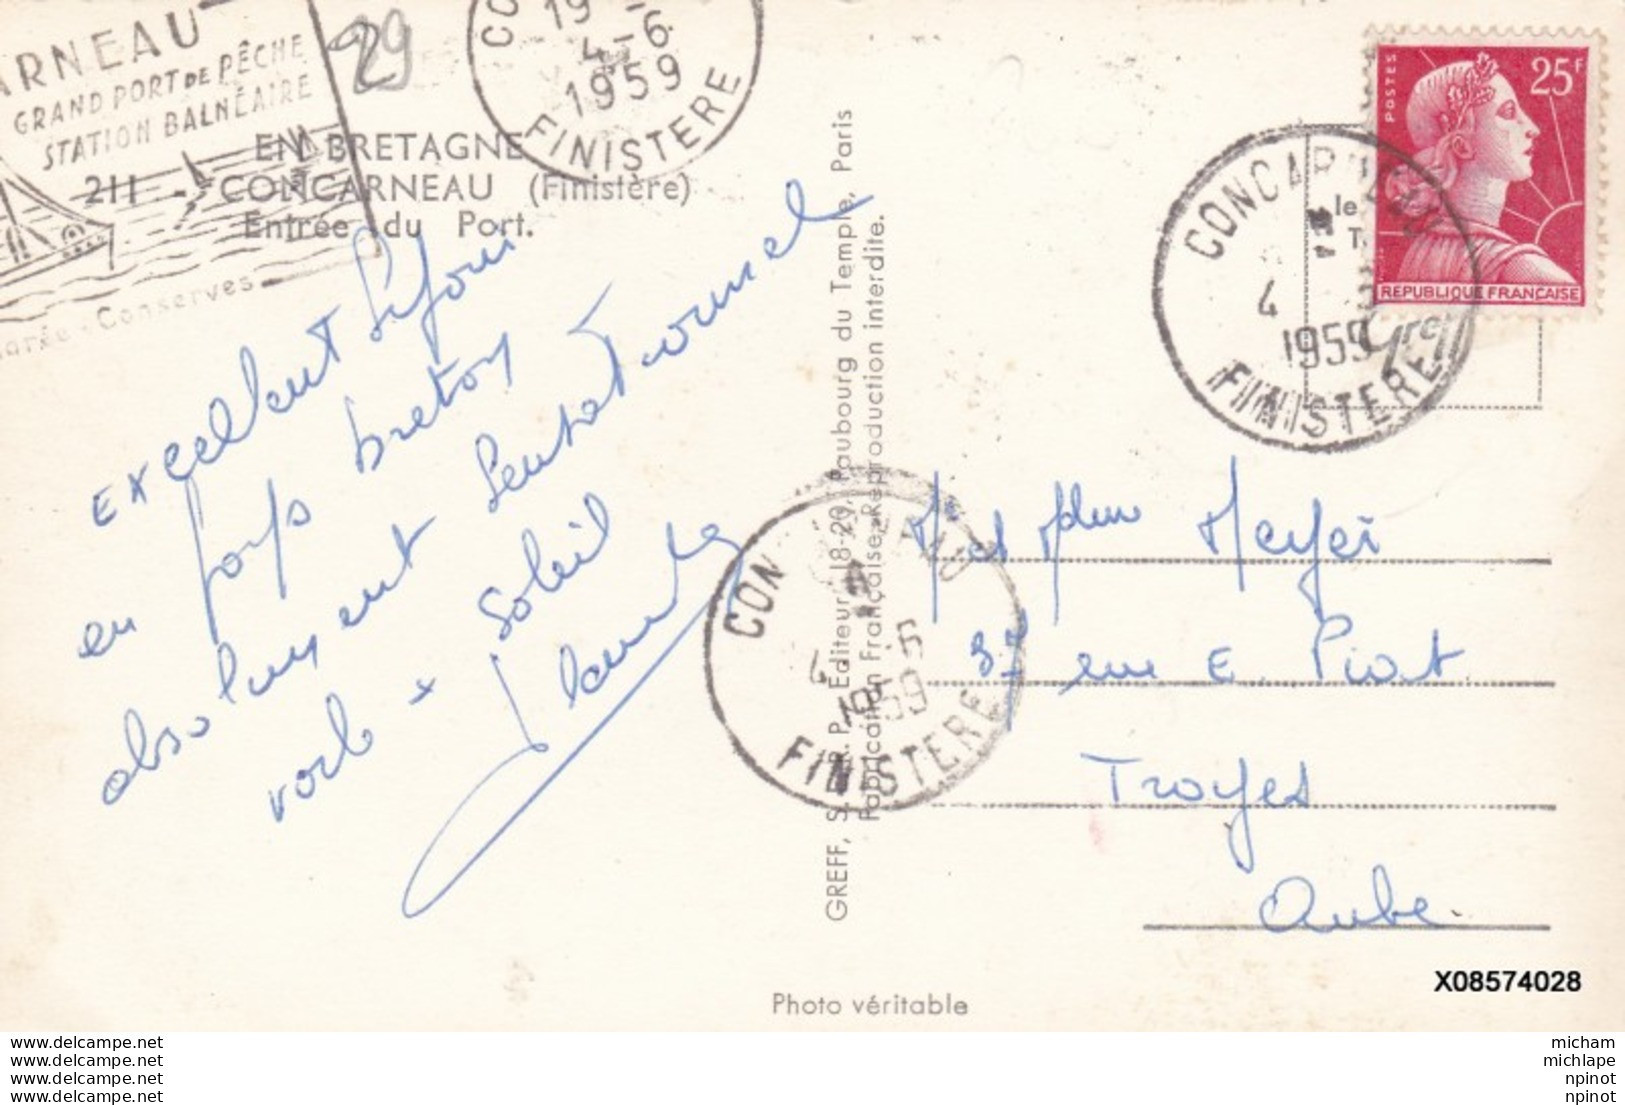 ARNEAU
GRAND PORT DE PÊCHE
STATION BALNÉAIRE
Conserves
29
19 -6
4-6
1959
FINISTERE
EN BRETAGNE
211 - CONCARNEAU (Finistère)
Entrée du Port.
Excellent séjour
en pays breton
absolument sensationnel
voile + soleil
GREFF, S.E.R.P. Editeur, 18-20, Faubourg du Temple, Paris
Fabrication Française. Reproduction interdite.
Photo véritable
POSTES
25F
REPUBLIQUE FRANÇAISE
CONCARNEAU
4
1959
FINISTERE
CONCARNEAU
4
1959
FINISTERE
Meyer
rue E. Piot
Troyes
Aube
X08574028
www.delcampe.net
www.delcampe.net
www.delcampe.net
www.delcampe.net
micham
michlape
npinot
npinot